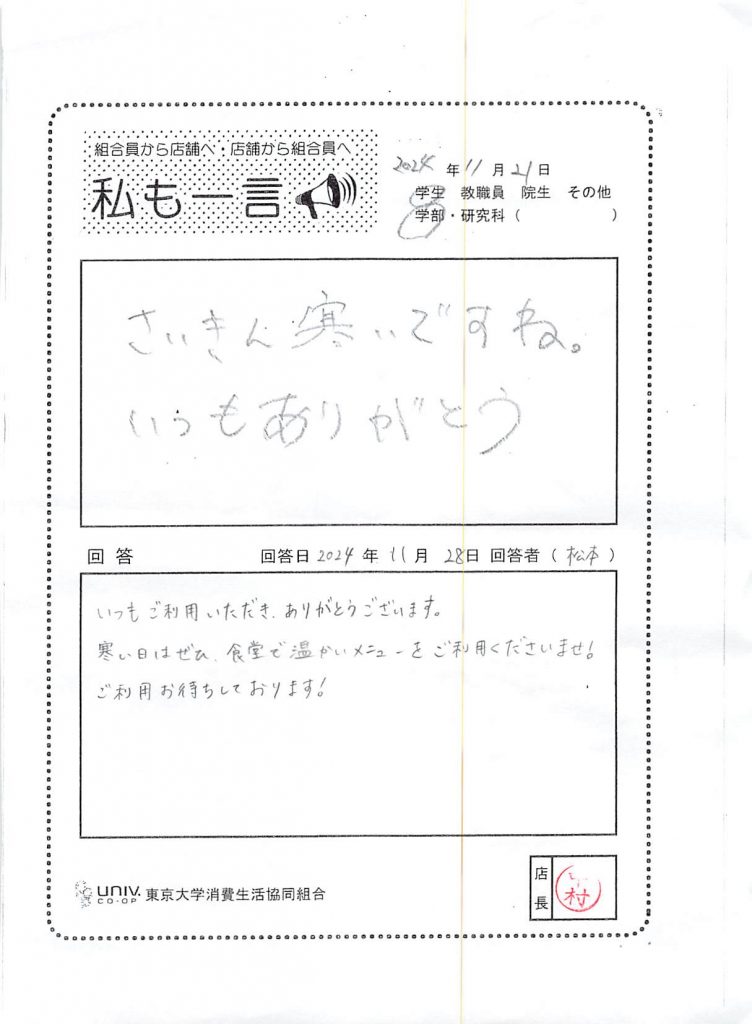 組合員から店舗へ・店舗から組合員へ
私も一言
2024年11月21日
学生 教職員 院生 その他
学部・研究科( )
さいきん寒いですね。
いつもありがとう
回答 回答日2024年11月28日 回答者(松本)
いつもご利用いただき、ありがとうございます。
寒い日はぜひ、食堂で温かいメニューをご利用くださいませ!
ご利用お待ちしております!
UNIV. CO-OP 東京大学消費生活協同組合
店長
村